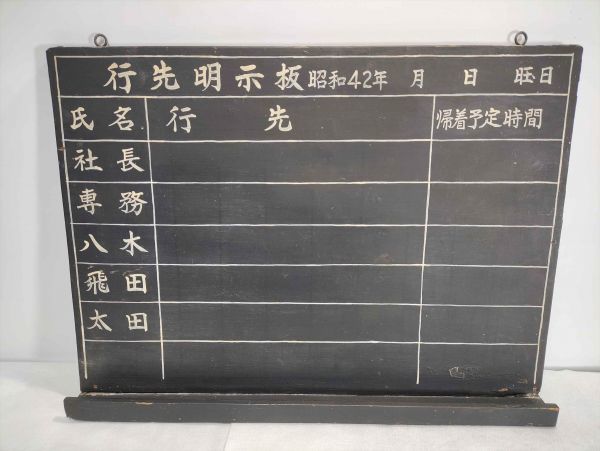 行先明示板 昭和42年 月 日 旺日
氏名 行先 帰着予定時間
社長
専務
八木
飛田
太田